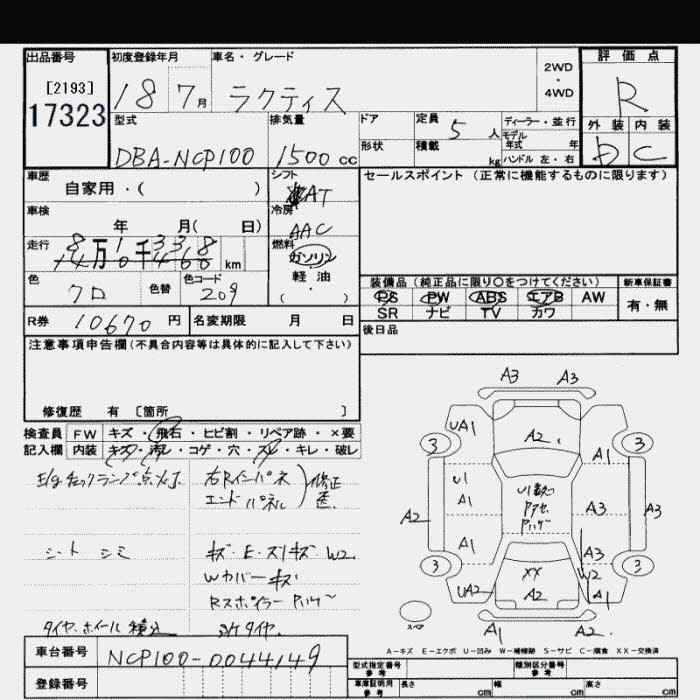 出品番号
[2193]
17323
初度登録年月
18 7月
車名・グレード
ラクティス
2WD
・
4WD
評価点
R
外装 内装
D C
型式
DBA-NCP100
排気量
1500 cc
ドア
形状
定員
5 人
積載
kg
ディーラー・並行
モデル
年式 年
ハンドル 左・右
車歴
自家用・( )
シフト
AT
セールスポイント(正常に機能するものに限ります)
車検
年 月( 日)
冷房
AAC
走行
8万1千338 km
燃料
ガソリン
軽油
( ・ )
色
クロ
色替
色コード
209
装備品(純正品に限り○をつけてください)
PS PW ABS エアB AW
SR ナビ TV カワ
新車保証書
有・無
R券 10670 円
名変期限 月 日
後日品
注意事項申告欄(不具合内容等は具体的に記入して下さい)
修復歴 有 [箇所 ]
検査員 FW キズ・飛石・ヒビ割・リペア跡・×要
記入欄 内装 キズ・汚レ・コゲ・穴・スレ・キレ・破レ
E/gチェックランプ点灯
右Rインパネ
エンドパネル
修正
歪
シート シミ
キズ・E・スリキズ W2
Wカバーキズ
Rスポイラー
タイヤ、ホイール積込
タイヤ
A3 A3
UA1
A2
3 3
A1
U1
A1
A2
A3 A3
A1
A3
W2
3 3
XX
A2
UA2
A1
スペア
A1 A2
A-キズ E-エクボ U-凹み W-補修跡 S-サビ C-腐食 XX-交換済
車台番号
NCP100-0044149
登録番号
型式指定番号
参考
類別区分番号
参考
車庫証明用
参考
長さ cm 幅 cm 高さ cm